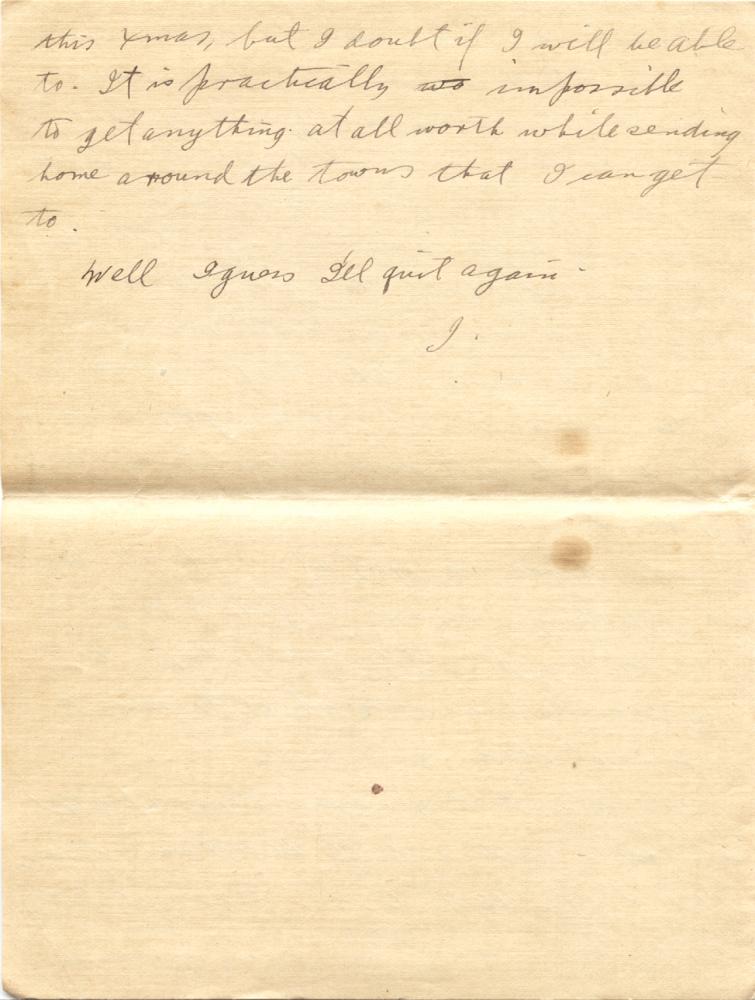 this Xmas, but I doubt if I will be able
to. It is practically impossible
to get anything at all worth while sending
home around the towns that I can get
to.
Well I guess I'll quit again.
J.